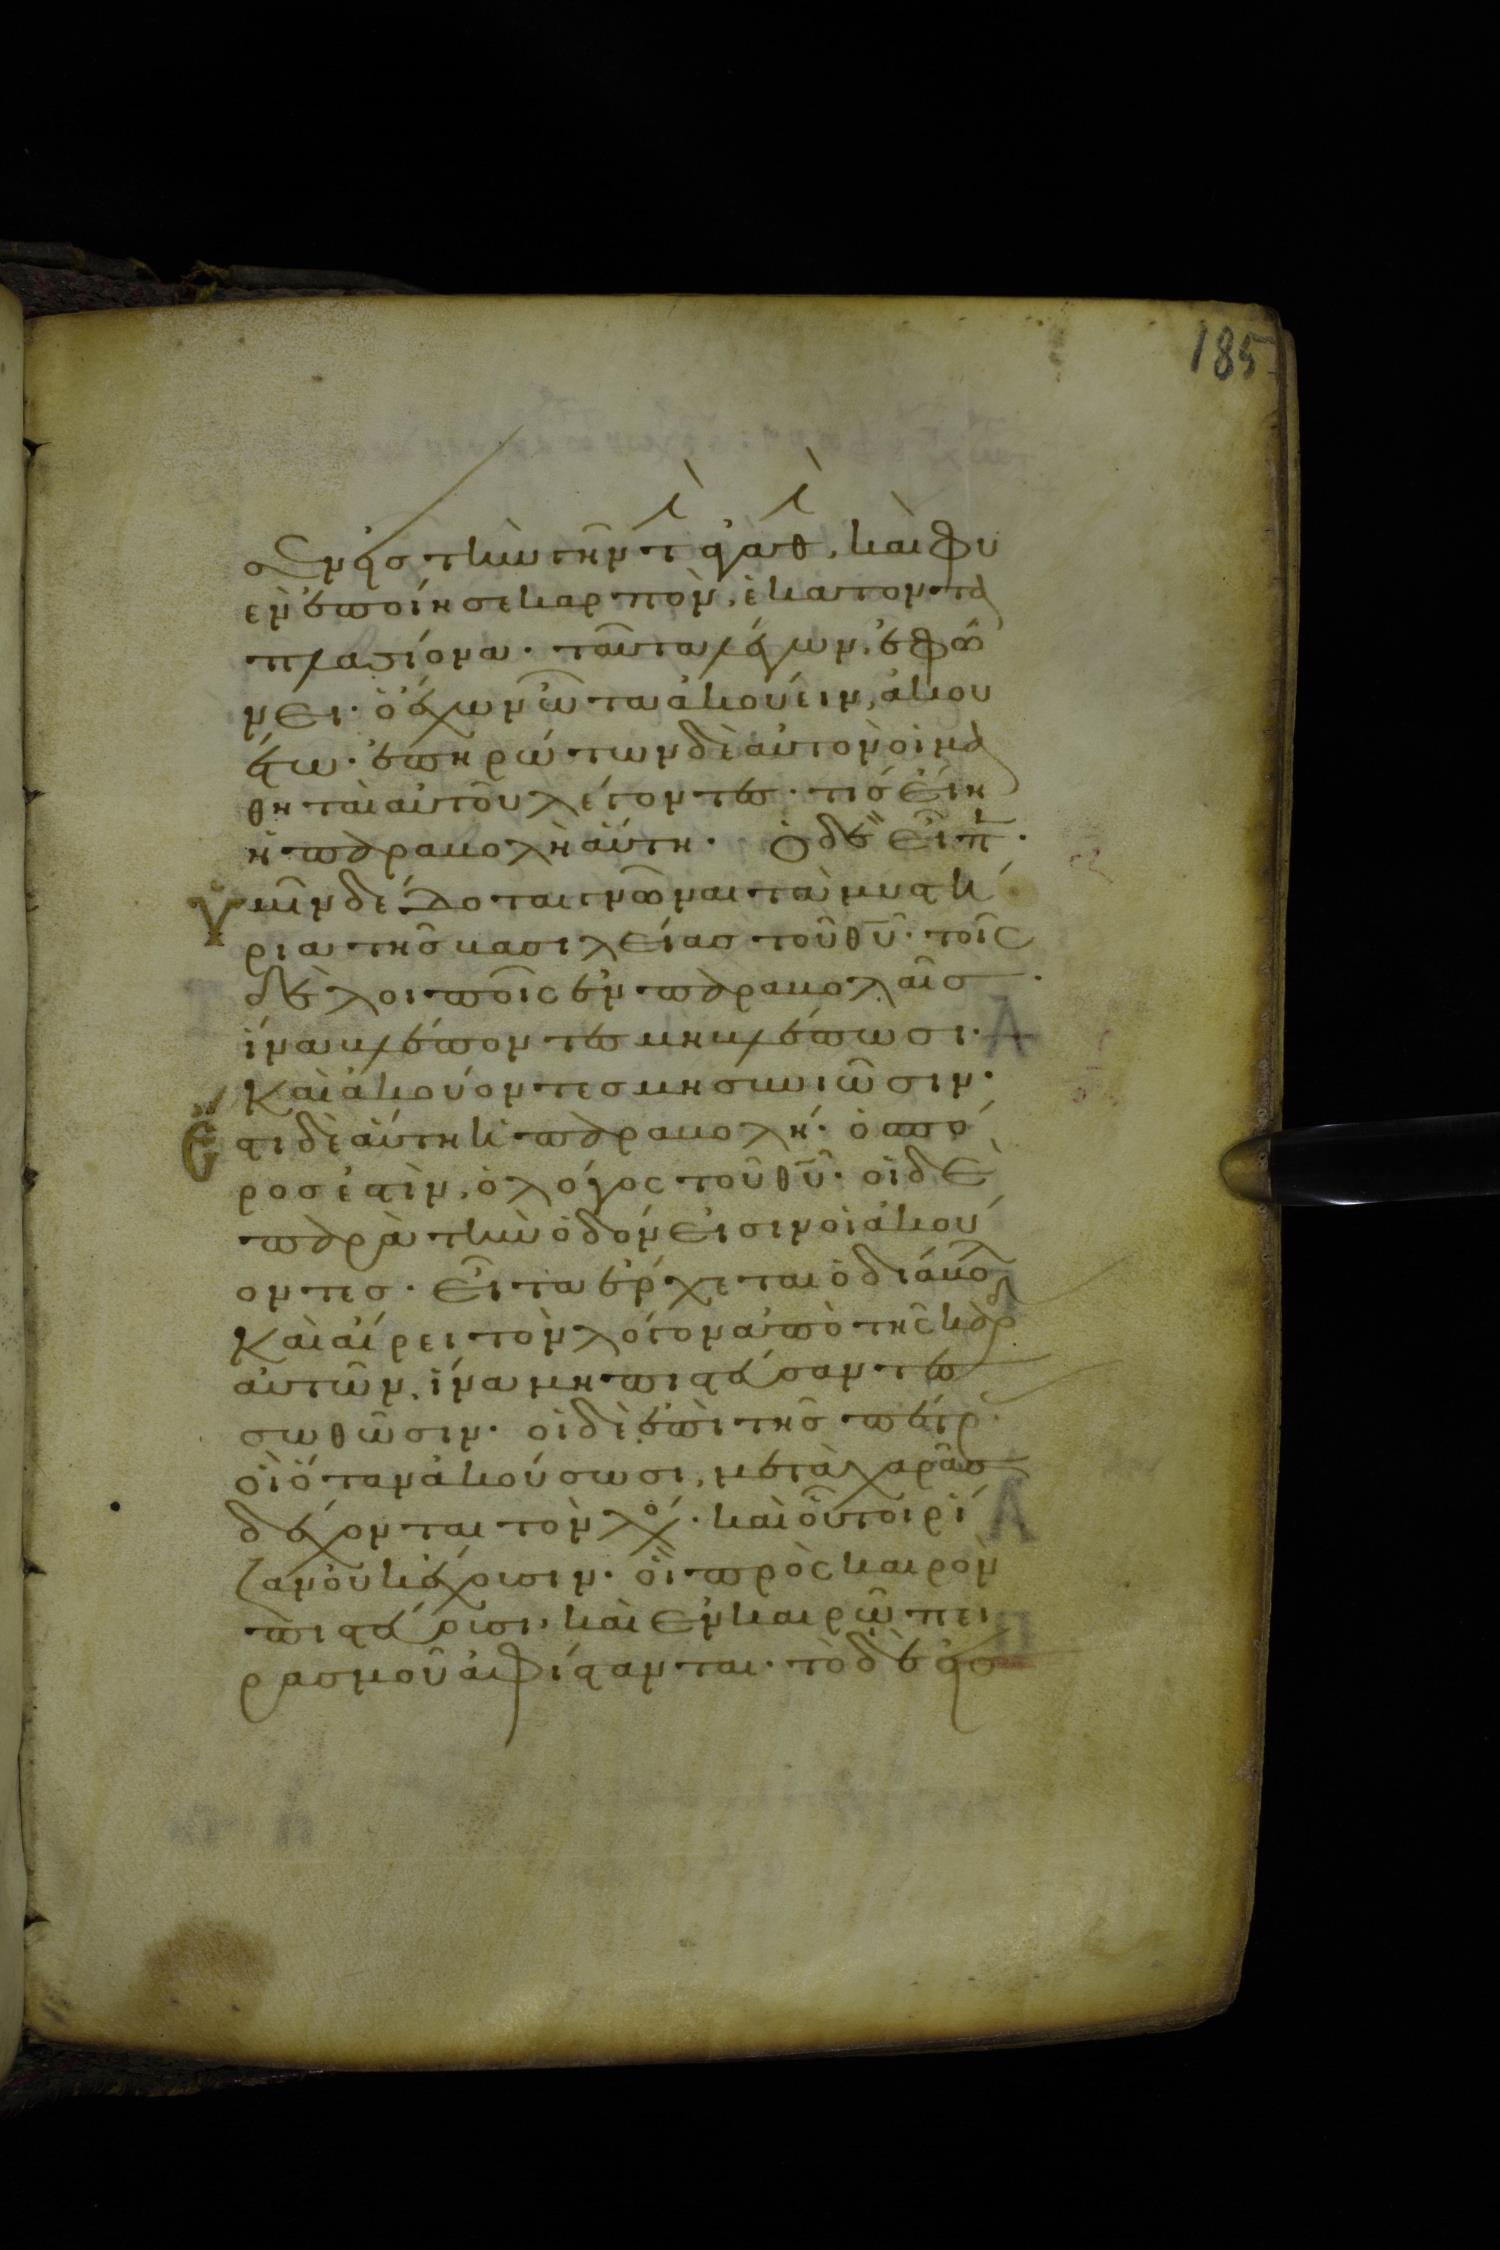 185
σεν εἰς τὴν γῆν τὴν ἀγαθὴν, καὶ φυ
ὲν ἐποίησε καρπὸν, ἑκατοντα
πλασίονα· ταῦτα λέγων, ἐφώ
νει· ὁ ἔχων ὦτα ἀκούειν, ἀκου
έτω· ἐπηρώτων δὲ αὐτὸν οἱ μα
θηταὶ αὐτοῦ λέγοντες· τίς εἴη
ἡ παραβολὴ αὕτη· Ὁ δὲ εἶπ·
Ὑμῖν δέδοται γνῶναι τὰ μυστή
ρια τῆς βασιλείας τοῦ θῦ· τοῖς
δὲ λοιποῖς ἐν παραβολαῖς·
ἵνα βλέποντες μὴ βλέπωσι·
Καὶ ἀκούοντες μὴ συνιῶσιν·
Ἔστι δὲ αὕτη ἡ παραβολή· ὁ σπό
ρος ἐστὶν, ὁ λόγος τοῦ θῦ· οἱ δὲ
παρὰ τὴν ὁδόν εἰσιν οἱ ἀκού
οντες· εἶτα ἔρχεται ὁ διάβολ
Καὶ αἴρει τὸν λόγον ἀπὸ τῆς καρδ
αὐτῶν, ἵνα μὴ πιστεύσαντες
σωθῶσιν· οἱ δὲ ἐπὶ τῆς πέτρ·
οἳ ὅταν ἀκούσωσι, μετὰ χαρᾶς
δέχονται τὸν λόγ· καὶ οὗτοι ῥί
ζαν οὐκ ἔχουσιν· οἳ πρὸς καιρὸν
πιστεύουσι, καὶ ἐν καιρῶ πει
ρασμοῦ ἀφίστανται· τὸ δὲ εἰς